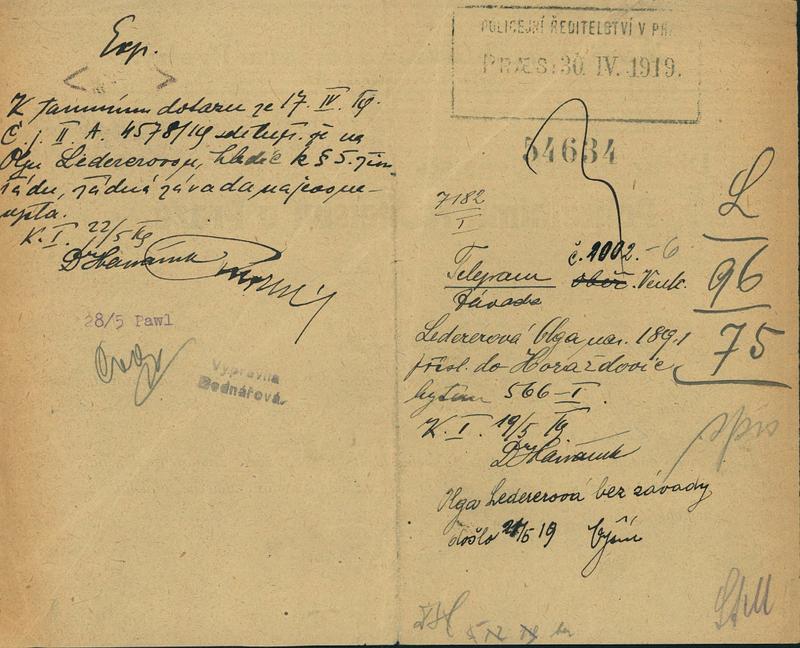 Exp.
K tamnímu dotazu ze 17. IV. 19.
Č. j. II A. 4578/19 sděluji, že na
Olgu Ledererovou, hledíc k § 5. živ.
řádu, žádná závada najevo ne-
vyšla.
K. I. 22/5 19
Dr.
28/5 Pawl
Vypravila
Bednářová.
POLICEJNÍ ŘEDITELSTVÍ V PR
PRÆS: 30. IV. 1919.
54634
7182
I
č. 2002. - 6
Telegram Venk.
Závada
Ledererová Olga nar. 1891
přísl. do Horažďovic
bytem 566-I.
K. I. 19/5 19
Dr.
Olga Ledererová bez závady
došlo 21/5 19
L
96
75
spis